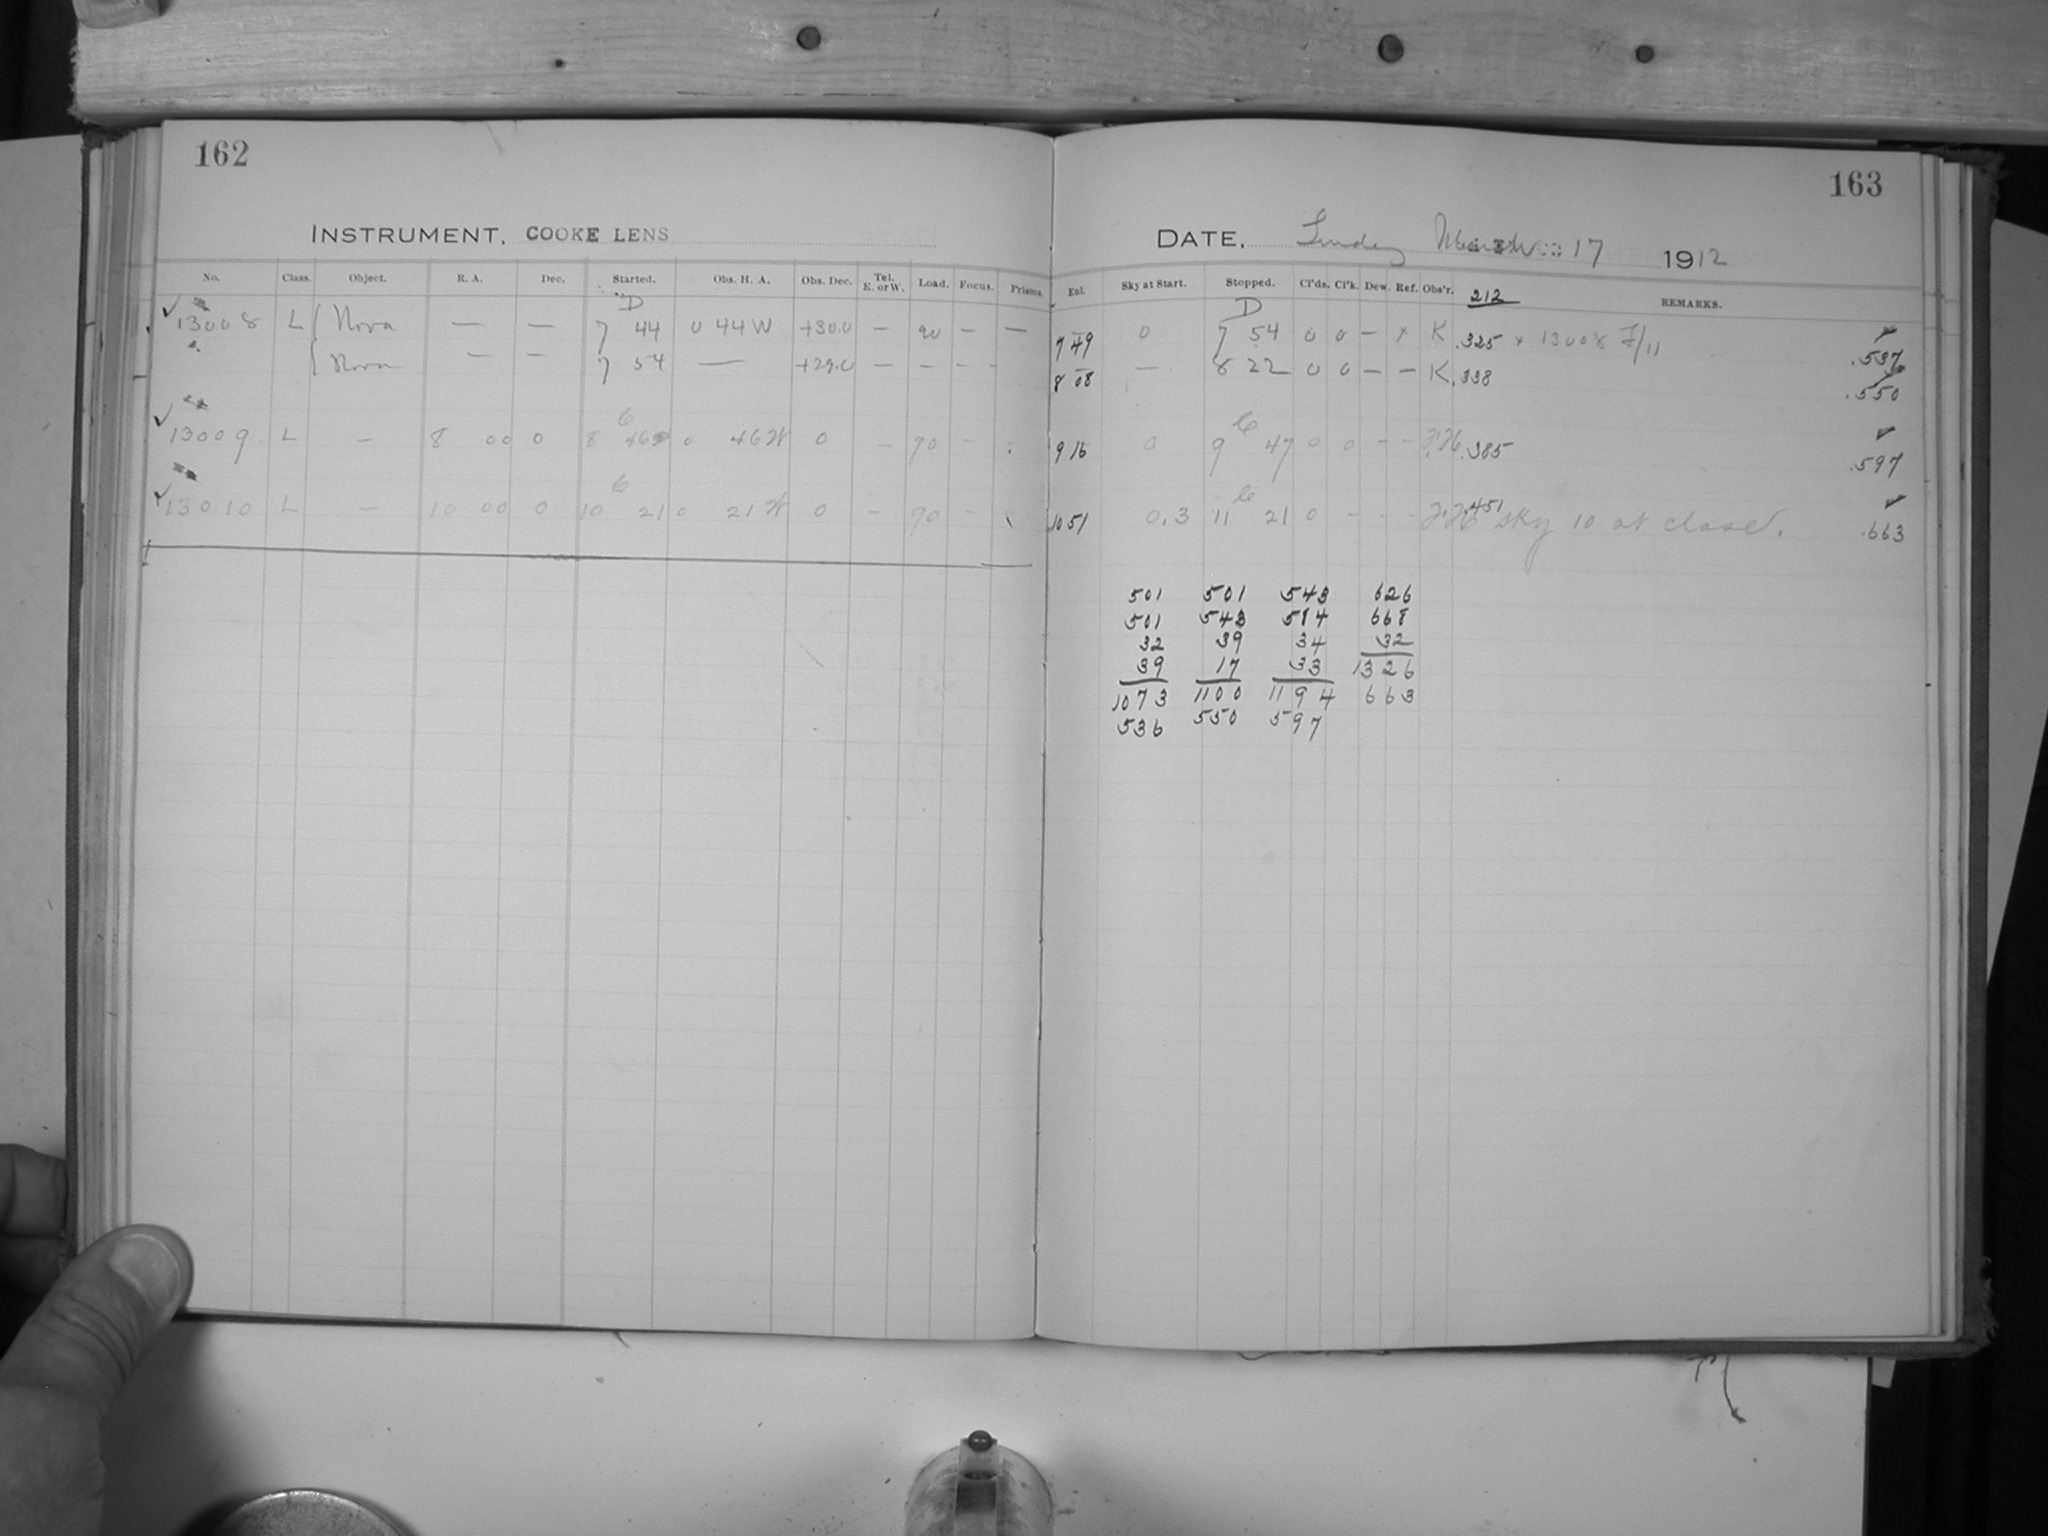 162
INSTRUMENT, COOKE LENS
No. Class. Object. R. A. Dec. Started. Obs. H. A. Obs. Dec. Tel. E. or W. Load. Focus. Prisms.
D
13008 L { Nova — — 7 44 0 44 W +30.0 — 90 — —
{ Nova — — 7 54 — +29.0 — — — -
6
13009 L — 8 00 0 8 46 0 46 W 0 — 90 -
6
13010 L — 10 00 0 10 21 0 21 W 0 — 90 -
163
DATE, Sunday March 17 1912
Exl. Sky at Start. Stopped. Cl'ds. Cl'k. Dew. Ref. Obs'r. 212 REMARKS.
D
7 49 0 7 54 0 0 — x K .325 x 13008 F/11 .537
8 08 — 8 22 0 0 — — K .338 .550
9 16 0 9 47 0 0 - - .385 .597
10 51 0.3 11 21 0 - - - .451 sky 10 at close. .663
501 501 543 626
501 543 584 668
32 39 34 32
39 17 33 1326
1073 1100 1194 663
536 550 597